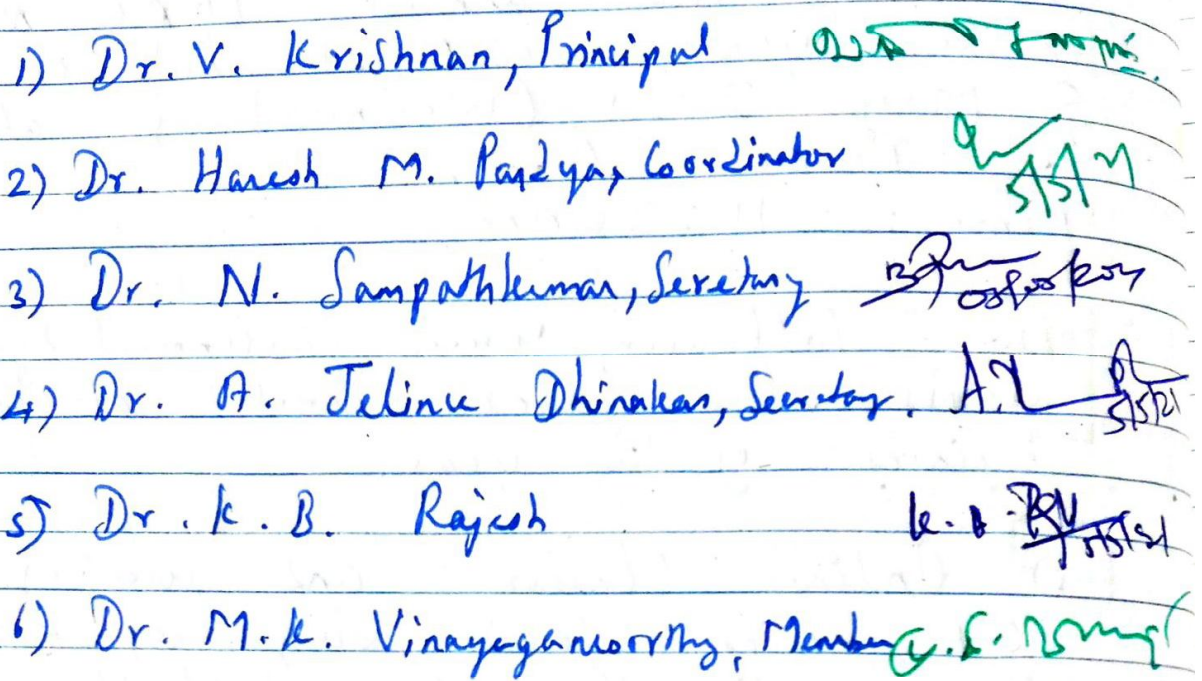 1) Dr. V. Krishnan, Principal
2) Dr. Haresh M. Pandya, Coordinator 5/5/21
3) Dr. N. Sampathkumar, Seretary
4) Dr. A. Jelinu Dhinakan, Secretary. 5/5/21
5) Dr. K. B. Rajesh
6) Dr. M. K. Vinayagamoorthy, Member